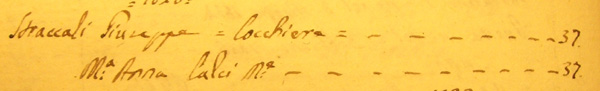 = 1820 =
Straccali Giuseppe = Cocchiere = - - - - - - - - 37.
M.ª Anna Calci M.ª - - - - - - - - - 37.